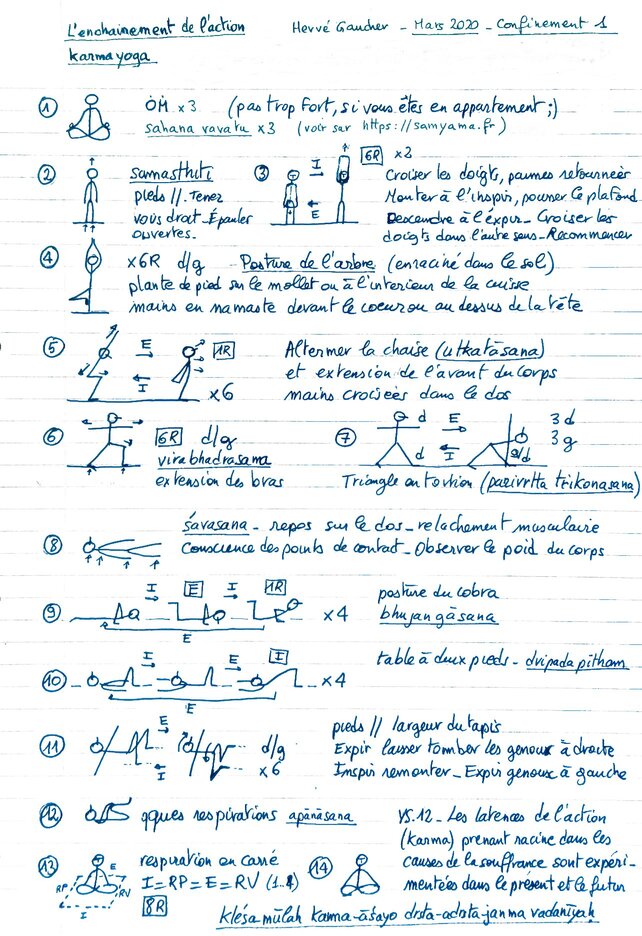 L'enchainement de l'action
Hervé Gaucher - Mars 2020 - Confinement 1
karma yoga
1 OM x3 (pas trop fort, si vous êtes en appartement ;)
sahana vavatu x3 (voir sur https://samyama.fr)
2 samasthiti
pieds //. Tenez
vous droit. Épaules
ouvertes.
3 I E 6R x2
Croiser les doigts, paumes retournées
Monter à l'inspir, pousser le plafond
Descendre à l'expir - Croiser les
doigts dans l'autre sens - Recommencer
4 x6R d/g Posture de l'arbre (enraciné dans le sol)
plante de pied sur le mollet ou à l'interieur de la cuisse
mains en namaste devant le coeur ou au dessus de la tête
5 E I 1R x6
Alterner la chaise (utkatāsana)
et extension de l'avant du corps
mains croisées dans le dos
6 6R d/g
virabhadrasana
extension des bras
7 d d E I g/d 3d
3g
Triangle en torsion (parivrtta trikonasana)
8 śavasana - repos sur le dos - relachement musculaire
Conscience des points de contact - Observer le poid du corps
9 I E I 1R E x4
posture du cobra
bhujangāsana
10 I E I E x4
table à deux pieds - dvipada pitham
11 E I d/g
x6
pieds // largeur du tapis
Expir laisser tomber les genoux à droite
Inspir remonter - Expir genoux à gauche
12 qques respirations apānāsana
13 RP E RV I
respiration en carré
I = RP = E = RV
8R
14
YS.12 - Les latences de l'action
(karma) prenant racine dans les
causes de la souffrance sont expéri-
mentées dans le présent et le futur
kleśa-mūlah karma-āśayo drsta-adrsta-janma vadanīyah